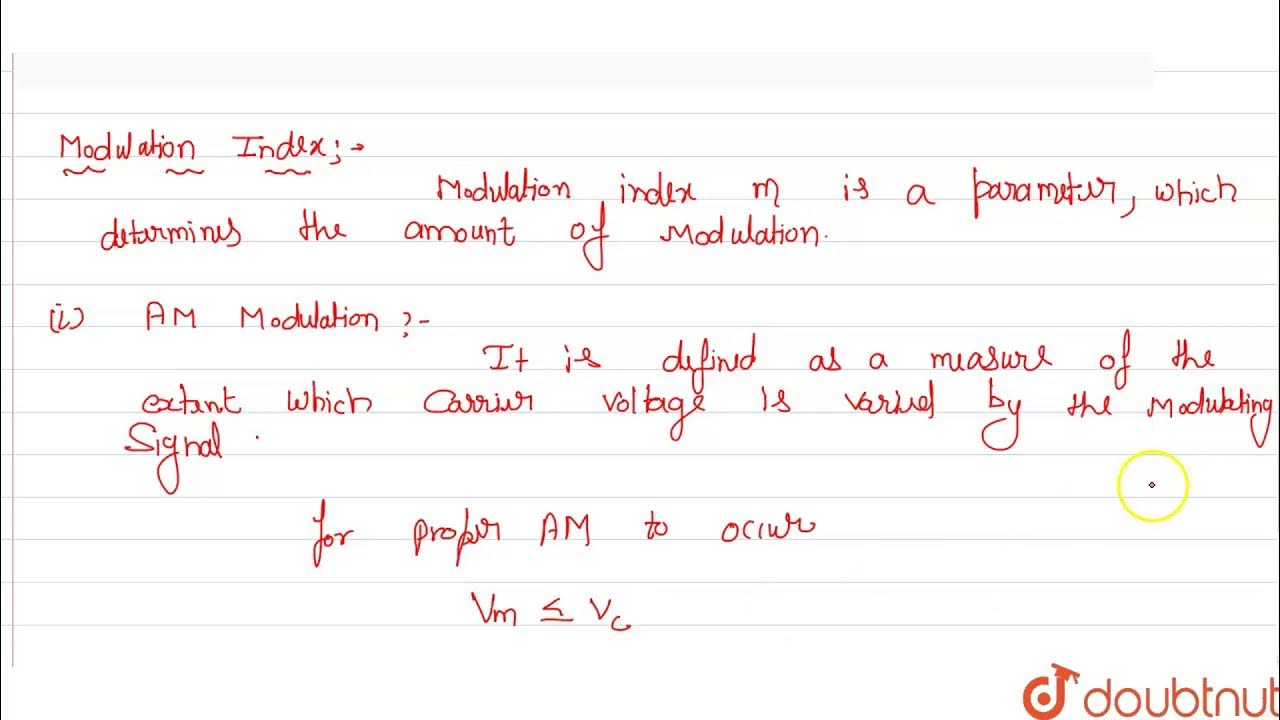 Modulation Index;→
Modulation index m is a parameter, which
determines the amount of Modulation.
(i) AM Modulation :-
It is defined as a measure of the
extant which Carrier voltage is varied by the Modulating
Signal.
for proper AM to occur
Vm ≤ Vc
doubtnut